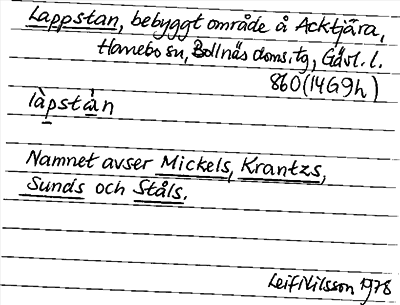 Lappstan, bebyggt område å Acktjära,
Hanebo sn, Bollnäs doms.tg, Gävl. l.
860 (14G9h)
làpstàn
Namnet avser Mickels, Krantzs,
Sunds och Ståls.
Leif Nilsson 1978